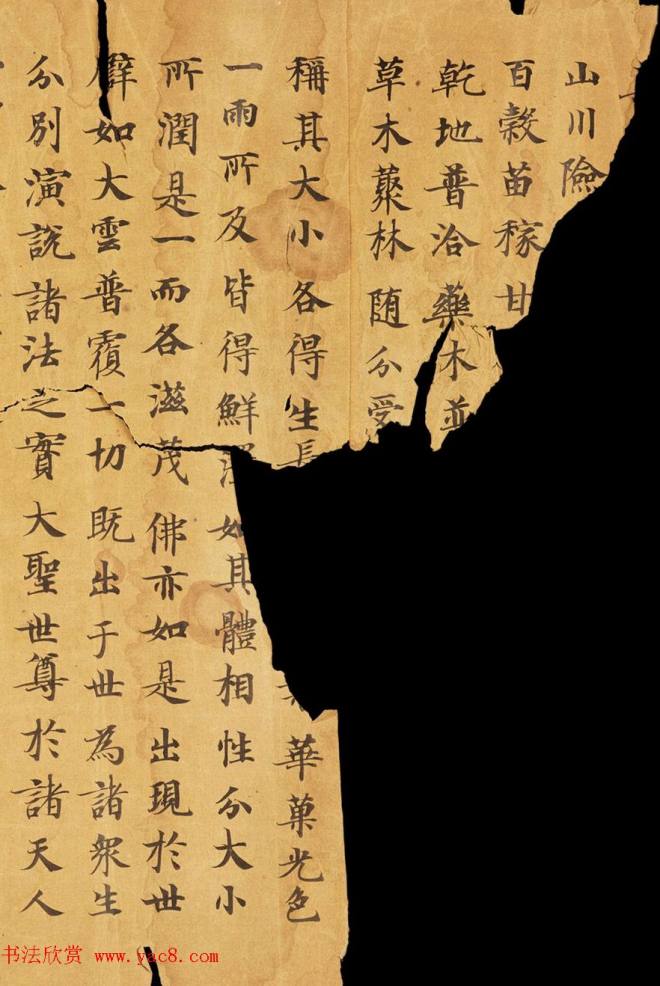 山川險
百穀苗稼甘
乾地普洽藥木並
草木藂林随分受
稱其大小各得生長 華菓光色
一雨所及皆得鮮澤如其體相性分大小
所潤是一而各滋茂佛亦如是出現於世
譬如大雲普覆一切既出于世為諸衆生
分別演說諸法之實大聖世尊於諸天人
书法欣赏 www.yac8.com